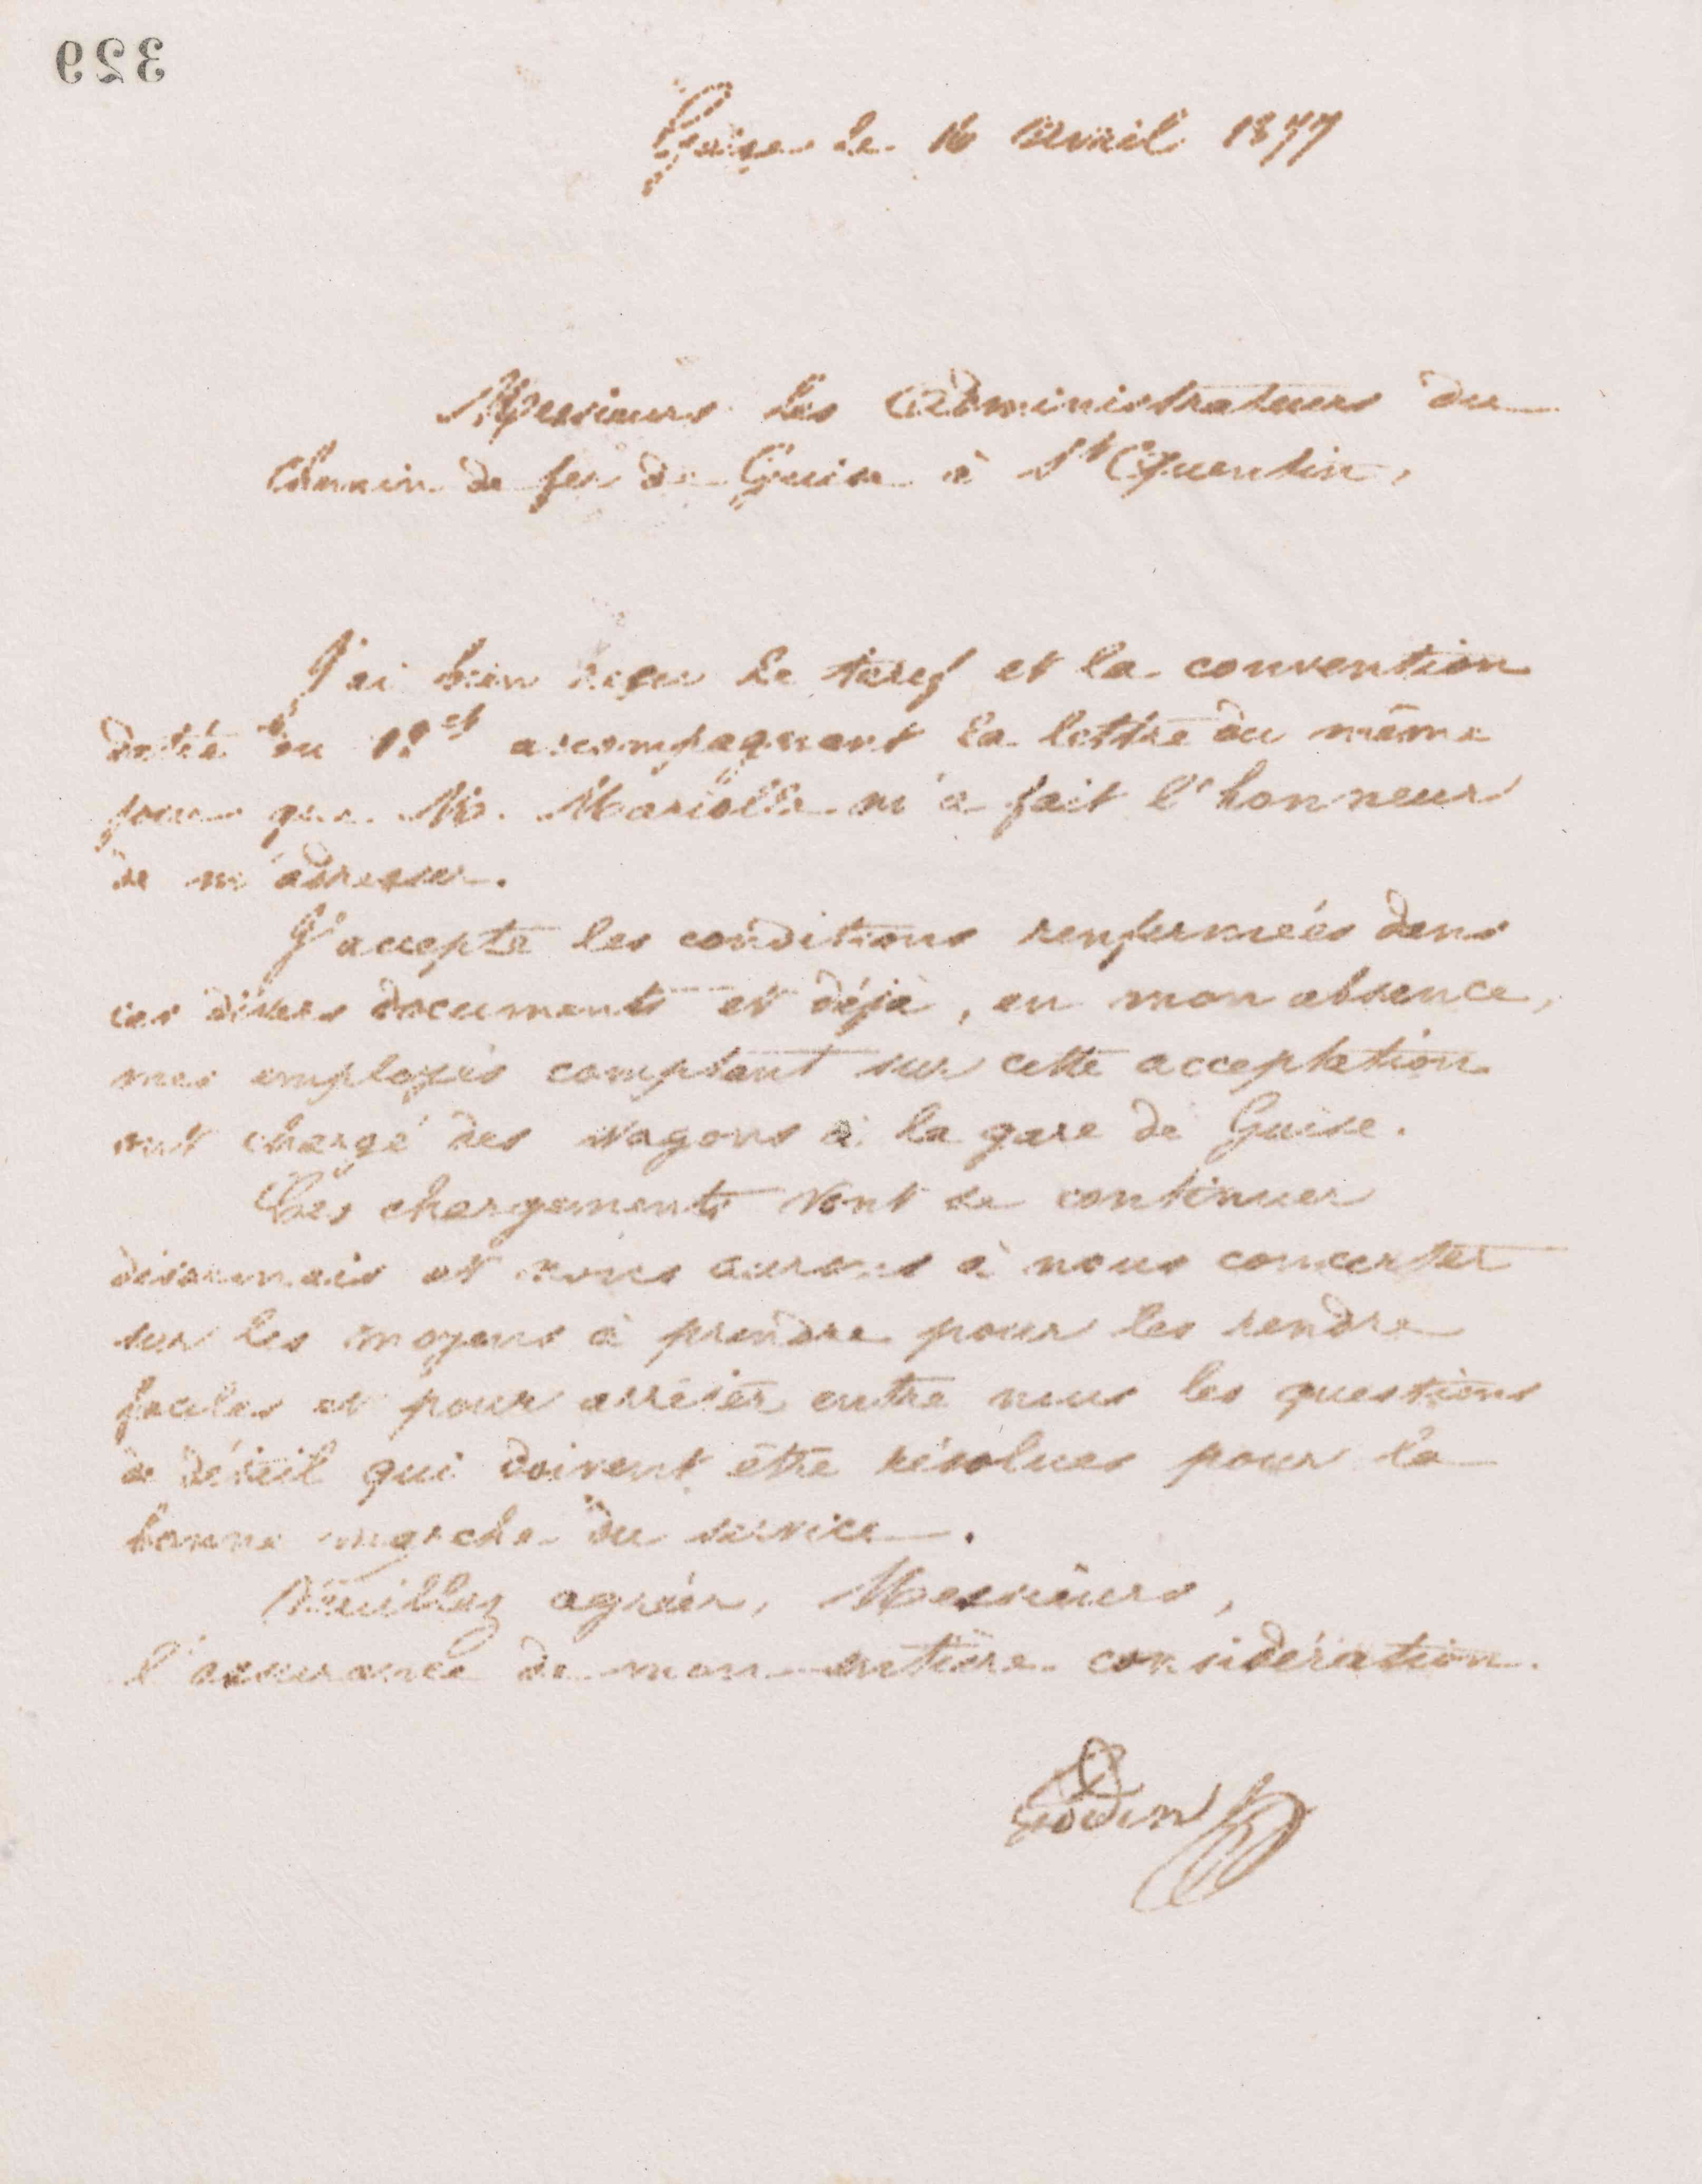 329
Guise le 16 Avril 1877
Messieurs les Administrateurs du
Chemin de fer de Guise à St Quentin,
J'ai bien reçu le tarif et la convention
datée du 12 et accompagnant la lettre du même
jour que M. Mariolle m'a fait l'honneur
de m'adresser.
J'accepte les conditions renfermées dans
ces divers documents et déjà, en mon absence,
mes employés comptant sur cette acceptation
ont chargé des wagons à la gare de Guise.
Ces chargements vont se continuer
désormais et nous aurons à nous concerter
sur les moyens à prendre pour les rendre
faciles et pour arrêter entre nous les questions
de détail qui doivent être résolues pour la
bonne marche du service.
Veuillez agréer, Messieurs,
l'assurance de mon entière considération.
Godin